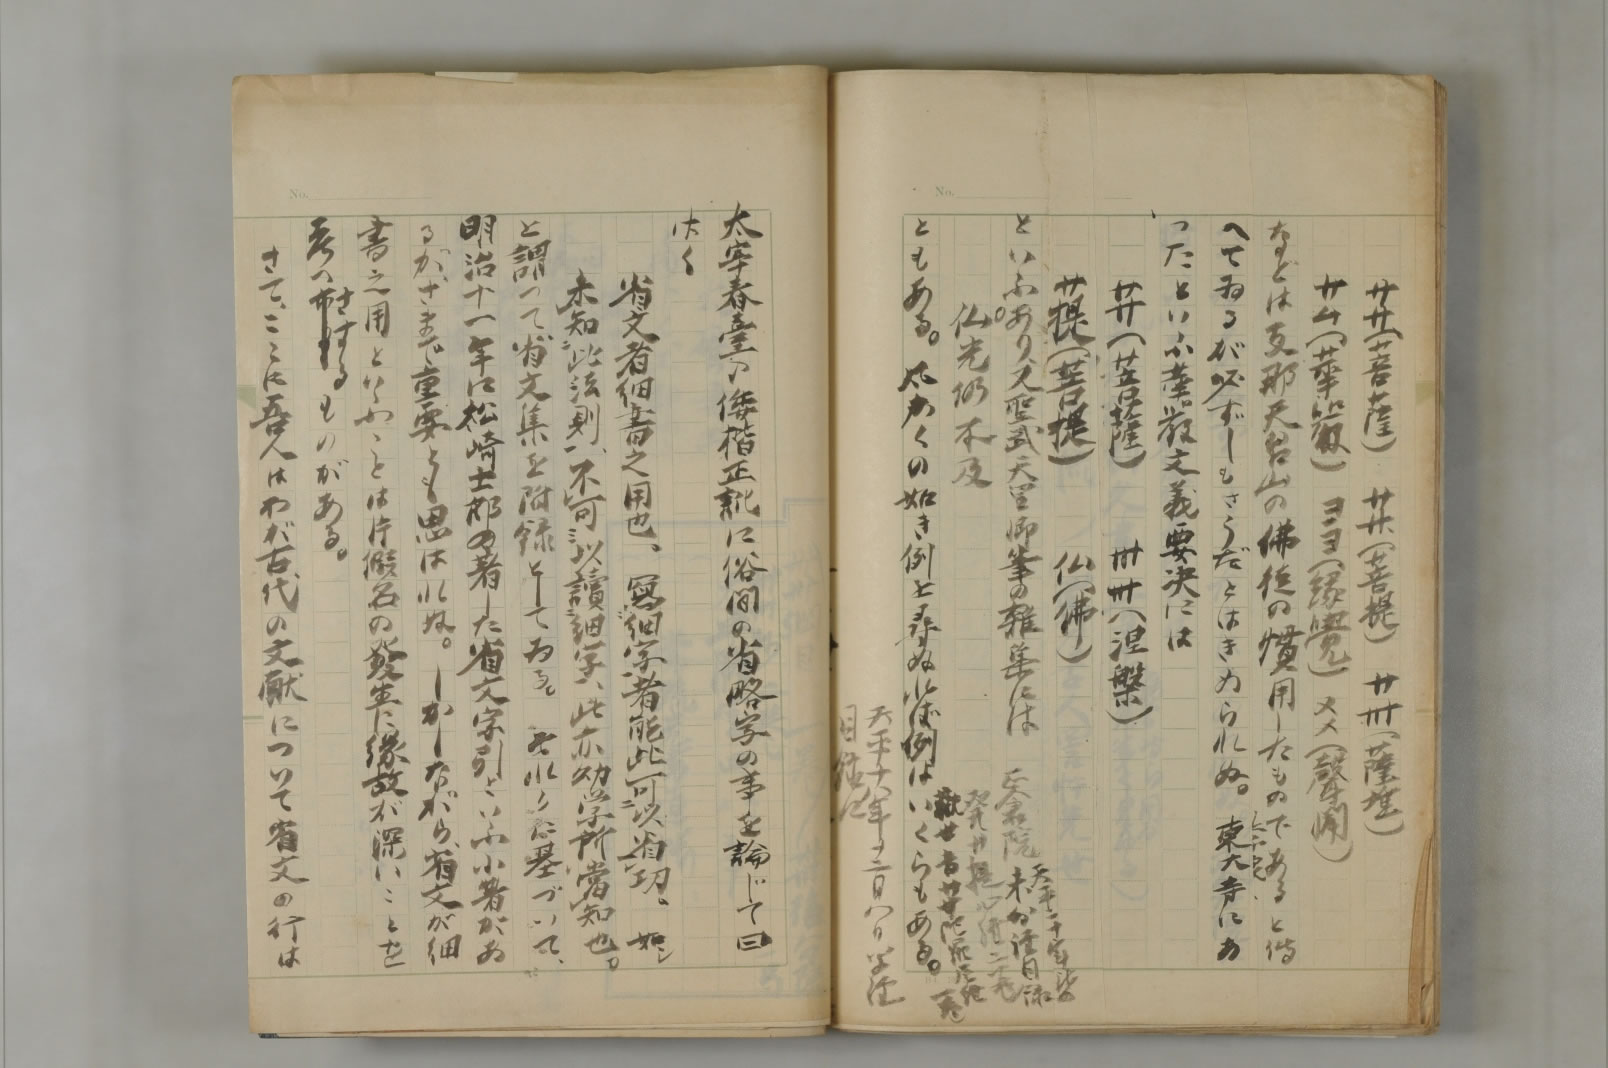 No.
艹艹(菩薩) 艹艹(菩提) 艹卅(薩埵)
艹ム(華嚴) ヨヨ(縁覺) 〤〤(聲聞)
などは支那天台山の佛徒の慣用したものであると傳
へてゐるが必ずしもさうだとはきめられぬ。東大寺にあ
つたといふ華嚴文義要決には
艹艹(菩薩) 卅卅(涅槃)
艹提(菩提) 仏(佛)
といふあり又聖武天皇御筆の雜集には
仏光仍不及
ともある。
如き例を尋ぬれば例はいくらもある。
天平二十年
未分經目録
發艹提心經二卷
天平十八年
目録に
No.
太宰春臺の倭楷正訛に俗間の省略字の事を論じて曰
はく
省文者細書之用也、寫細字者能此可以省功。如
未知此法則、不可以讀細字、此亦幼学所當知也。
と謂つて省文集を附録としてゐる。それらに基づいて、
明治十一年に松崎士郎の著した省文字引といふ小著があ
るが、さまで重要とも思はれぬ。しかしながら、省文が細
書之用といふことは片假名の發生に縁故が深いことを
考へさするものがある。
さて、ここに吾人はわが古代の文献について省文の行は